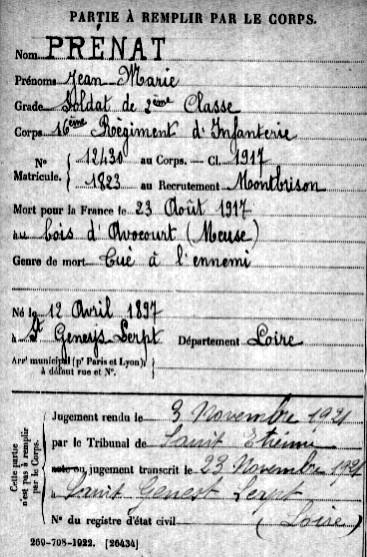 PARTIE À REMPLIR PAR LE CORPS.
Nom PRÉNAT
Prénoms Jean Marie
Grade Soldat de 2ème Classe
Corps 16ème Régiment d'Infanterie
N° Matricule. { 12430 au Corps. — Cl. 1917
1823 au Recrutement Montbrison
Mort pour la France le 23 Août 1917
au bois d'Avocourt (Meuse)
Genre de mort Tué à l'ennemi
Né le 12 Avril 1897
à St Geneys Lerpt Département Loire
Arrt municipal (pr Paris et Lyon), à défaut rue et N°.
Cette partie n'est pas à remplir par le Corps.
Jugement rendu le 3 Novembre 1921
par le Tribunal de Saint Etienne
acte ou jugement transcrit le 23 Novembre 1921
à Saint Genest Lerpt
N° du registre d'état civil (Loire)
269-708-1922. [26434]